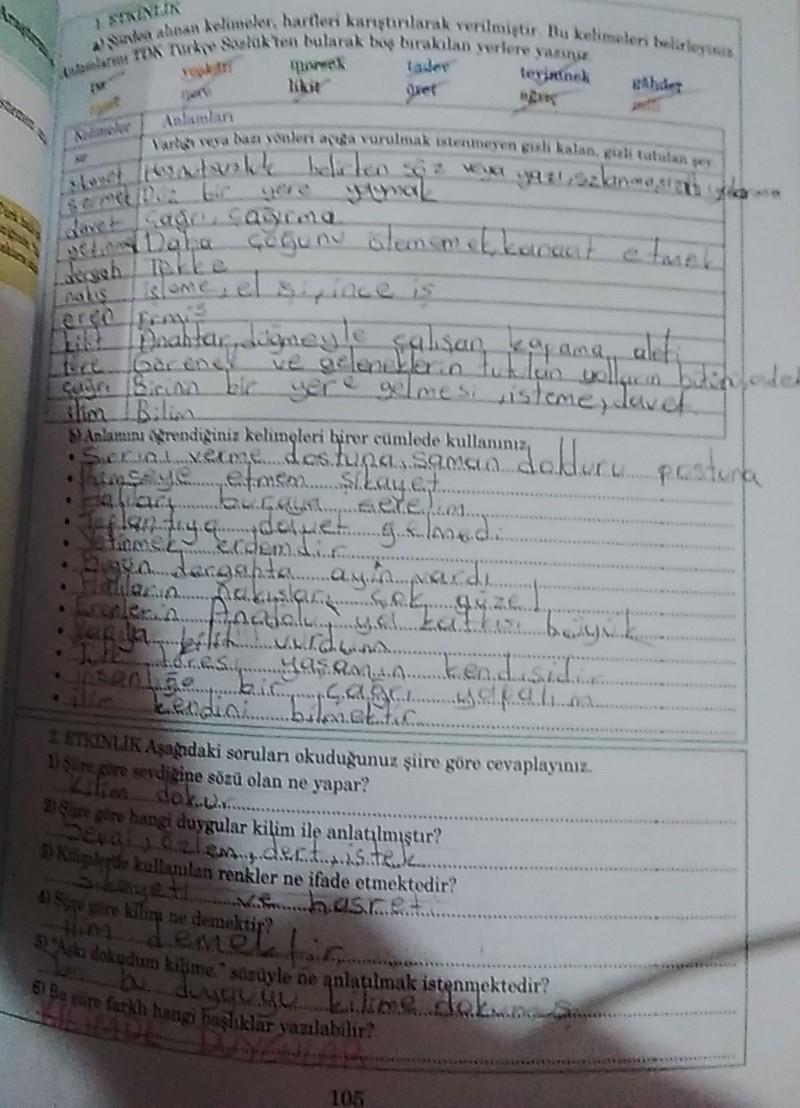 1. ETKİNLİK
a) Şiirden alınan kelimeler, harfleri karıştırılarak verilmiştir. Bu kelimeleri belirleyiniz.
Anlamlarını TDK Türkçe Sözlük'ten bularak boş bırakılan yerlere yazınız.
tadev teyinmek gâhder
likit
Kelimeler Anlamları
sır Varlığı veya bazı yönleri açığa vurulmak istenmeyen gizli kalan, gizli tutulan şey
belirten söz veya yazı, sızlanma
sermek Düz bir yere yaymak
davet Çağrı, çağırma
Daha çoğunu istememek, kanaat etmek
dergah Tekke
nakış işleme, el işi, ince iş
eren Ermiş
kilit Anahtar, düğmeyle çalışan kapama aleti
töre Görenek ve geleneklerin tutulan yolların bütünü, adet
çağrı Birinin bir yere gelmesi isteme, davet
ilim Bilim
b) Anlamını öğrendiğiniz kelimeleri birer cümlede kullanınız.
Sırrını verme dostuna, saman doldurur postuna
Kimseye etmem şikayet
Halıları buraya serelim
Toplantıya davet gelmedi
Yetinmek erdemdir
Bugün dergahta ayin vardı
Halıların nakışları çok güzel
Erenlerin Anadolu'ya katkısı büyük
Kapıya kilit vurdum
töresi yaşamın kendisidir
insanlığa bir çağrı yapalım
ilim kendini bilmektir
2. ETKİNLİK Aşağıdaki soruları okuduğunuz şiire göre cevaplayınız.
1) Şiire göre sevdiğine sözü olan ne yapar?
Kilim dokur
2) Şiire göre hangi duygular kilim ile anlatılmıştır?
Sevgi, özlem, dert, istek
3) Kilimlerde kullanılan renkler ne ifade etmektedir?
Şikayeti ve hasreti
4) Şiire göre kilim ne demektir?
ilim demektir
5) "Aşkı dokudum kilime." sözüyle ne anlatılmak istenmektedir?
bu duyguyu kilime
6) Bu şiire farklı hangi başlıklar yazılabilir?
DUYGULAR
105